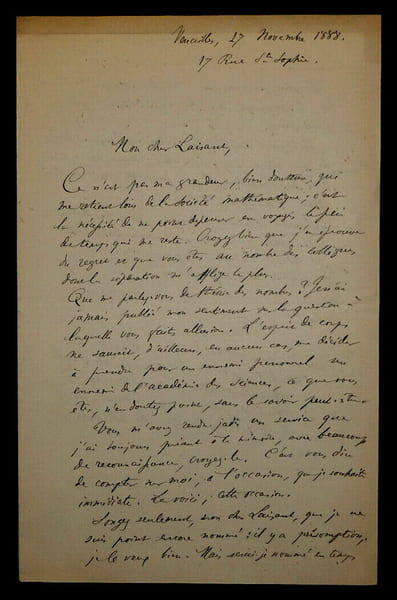 Versailles, 27 Novembre 1888.
17 Rue Ste Sophie.
Mon cher Laisant,
Ce n'est pas ma grandeur, bien douteuse, qui
me retient loin de la Société mathématique; c'est
la nécessité de ne point dépenser en voyages le peu
de temps qui me reste. Croyez bien que j'en éprouve
du regret et que vous êtes au nombre des collègues
dont la séparation m'afflige le plus.
Que me parlez-vous de théorie des nombres? Je n'ai
jamais publié mon sentiment sur la question à
laquelle vous faites allusion. L'espèce de corps
ne saurait, d'ailleurs, en aucun cas, me décider
à prendre pour un ennemi personnel un
ennemi de l'académie des sciences, ce que vous
êtes, n'en doutez point, sans le savoir peut-être.
Vous m'avez rendu jadis un service que
j'ai toujours présent à la mémoire, avec beaucoup
de reconnaissance, croyez-le. C'est vous dire
de compter sur moi, à l'occasion, que je souhaite
immédiate. La voici, cette occasion.
Songez seulement, mon cher Laisant, que je ne
suis point encore nommé; il y a présomption,
je le veux bien. Mais serai-je nommé en temps